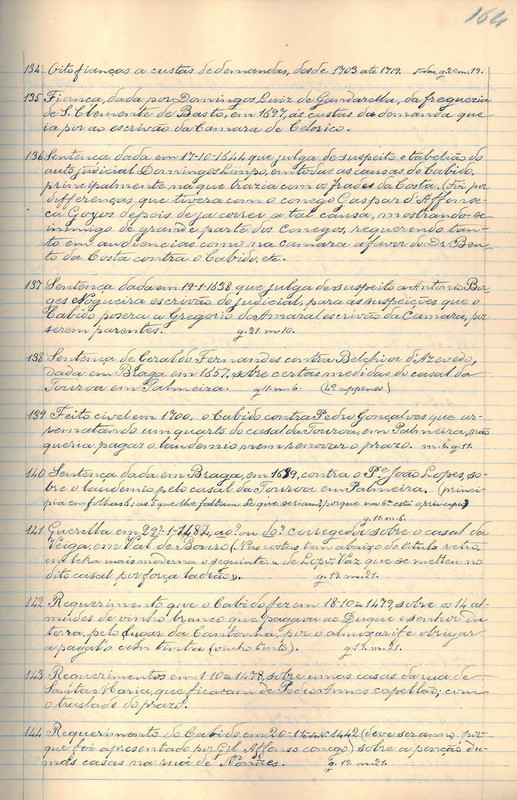 164
134 Oito fianças a custas de demandas, desde 1703 até 1719. g. 20 m. 19.
135 Fiança, dada por Domingos Luiz de Gandarella, da freguezia
de S. Clemente de Basto, em 1697, ás custas da demanda que
ia por ao escrivão da Camara de Celorico.
136 Sentença dada em 17-10-1644 que julga de suspeito o tabelião do
auto judicial Domingos Limpo, em todas as causas do Cabido,
principalmente na que trazia com os frades da Costa. (Foi por
differenças que tivera com o conego Gaspar d'Affonse-
ca Goyos depois de ja correr a tal causa, mostrando-se
inimigo de grande parte dos conegos, requerendo tan-
to em audiencias como na camara a favor do Dr Ben-
to da Costa contra o Cabido, etc.
137 Sentença dada em 19-1-1638 que julga de suspeito a Antonio Bor-
ges Nogueira escrivão do judicial, para as suspeições que o
Cabido pozera a Gregorio do Amaral escrivão da Camara, por
serem parentes. g. 21. m. 10.
138 Sentença de Geraldo Fernandes contra Belchior d'Azevedo,
dada em Braga em 1657, sobre certas medidas do casal da
Touroa em Palmeira. g. 11. m. 6. (1º appenso)
139 Feito civel em 1700, o Cabido contra Pedro Gonçalves que ar-
rematando um quarto do casal da Touroa, em Palmeira, não
queria pagar o laudemio nem renovar o prazo. m. 6. g. 11.
140 Sentença dada em Braga, em 1689, contra o Pe João Lopes, so-
bre o laudemio pelo casal da Touroa em Palmeira. (princi-
pia em folhas 6; as que lhe faltam de que seriam? porque na 6ª está o principio)
g. 11. m. 6.
141 Querella em 29-1-1484, ao? ou do? corregedor sobre o casal da
Veiga, em Val de Bouro (Nas costas tem abaixo do titulo retro,
em letra mais moderna o seguinte: « de Lopo Vaz que se metteu no
dito casal por força ladrão». g. 12. m. 21.
142 Requerimento que o Cabido fez em 18-10-1479 sobre os 14 al-
mudes de vinho branco que pagava ao Duque e senhor da
terra, pelo lugar da Cantonha, por o almoxarife obrigar
a pagal-o com tinta (vinho tinto). g. 12. m. 21.
143 Requerimentos em 1-10-1478, sobre umas casas da rua de
Santa Maria, que ficaram de Pedro Annes capellão; com
o treslado do prazo.
144 Requerimento do Cabido em 20-1-1442 (deve ser anno. por-
que foi apresentado por Gil Affonso conego) sobre a penção du-
mas casas na rua de Nonães. g. 12. m. 21.